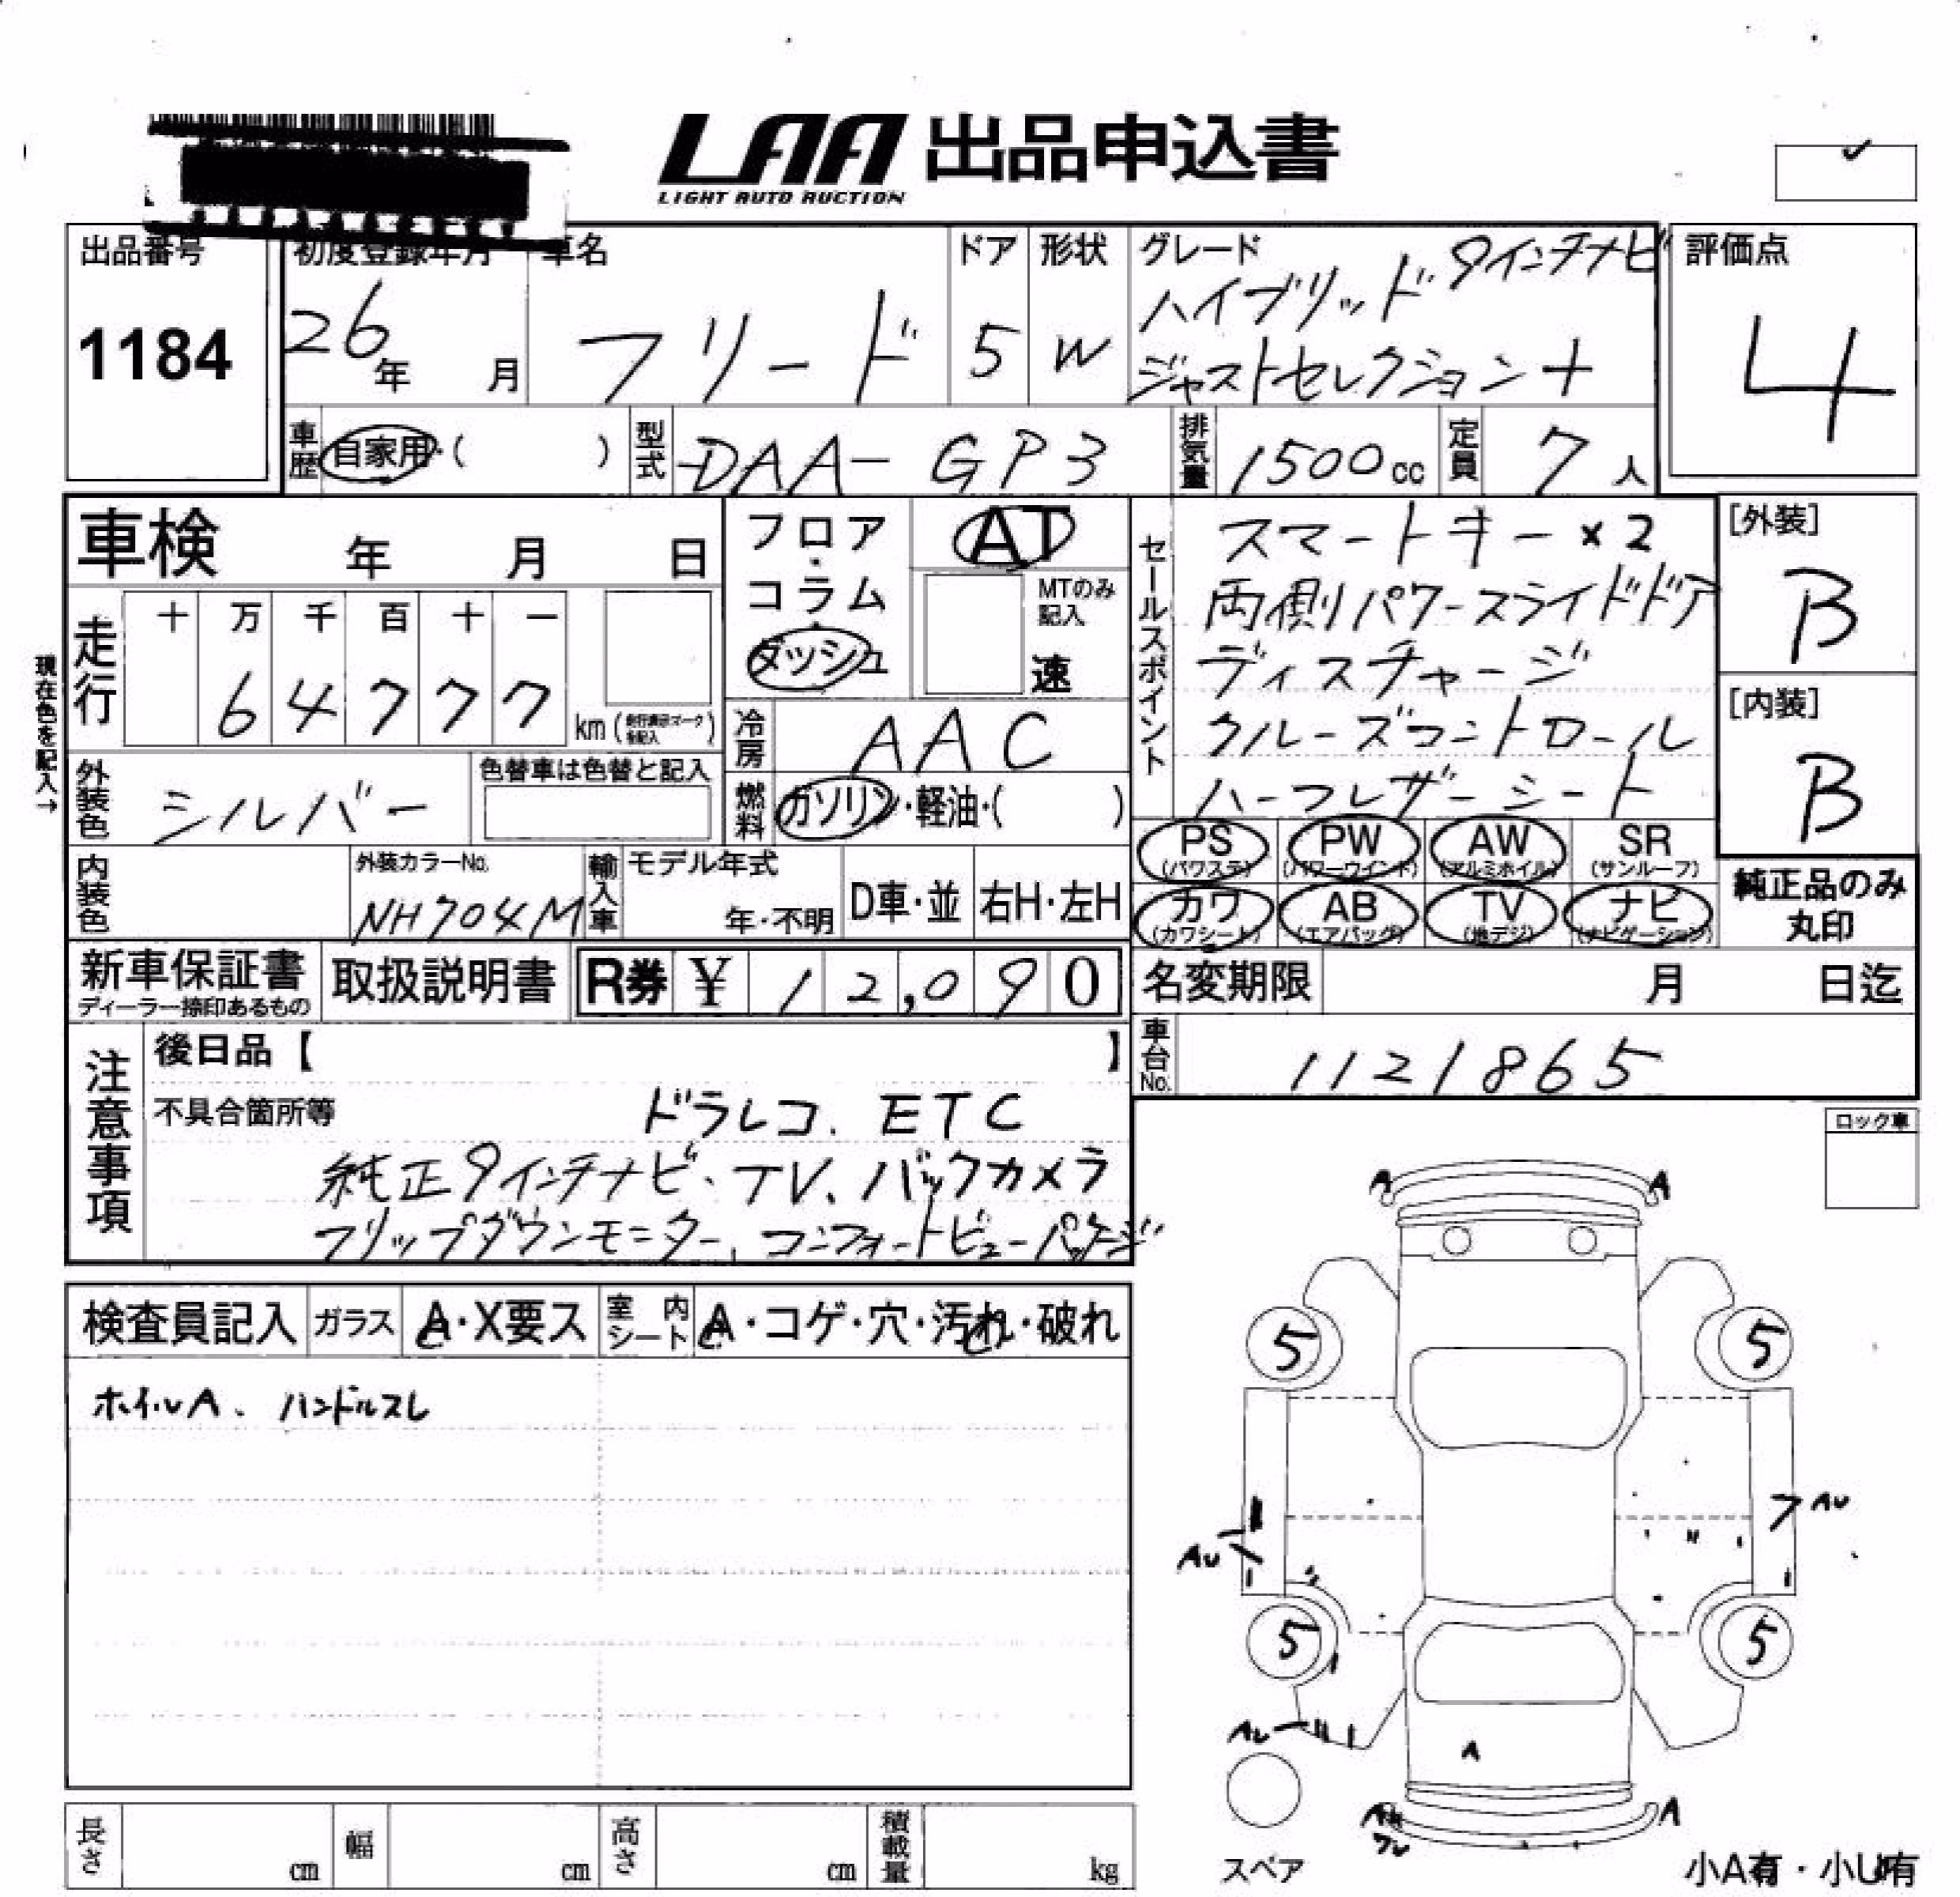 LAA 出品申込書
LIGHT AUTO AUCTION
出品番号
1184
初度登録年月
26年 月
車名
フリード
ドア
5
形状
W
グレード
9インチナビ
ハイブリッド
ジャストセレクション+
評価点
4
車歴 自家用・( )
型式 DAA-GP3
排気量 1500cc
定員 7人
車検 年 月 日
走行
十 万 千 百 十 一
6 4 7 7 7 km
現在色を記入→
外装色 シルバー
色替車は色替と記入
内装色
外装カラーNo.
NH704M
輸入車
モデル年式
年・不明
D車・並
右H・左H
フロア・コラム・ダッシュ
AT
MTのみ記入
速
冷房 AAC
燃料 ガソリン・軽油・( )
セールスポイント
スマートキー×2
両側パワースライドドア
ディスチャージ
クルーズコントロール
ハーフレザーシート
[外装]
B
[内装]
B
PS (パワステ)
PW (パワーウインド)
AW (アルミホイル)
SR (サンルーフ)
カワ (カワシート)
AB (エアバッグ)
TV (地デジ)
ナビ (ナビゲーション)
純正品のみ
丸印
新車保証書
ディーラー捺印あるもの
取扱説明書
R券 ¥ 12,090
名変期限 月 日迄
車台No. 1121865
注意事項
後日品【 】
不具合箇所等
ドラレコ、ETC
純正9インチナビ、TV、バックカメラ
フリップダウンモニター、コンフォートビューパッケージ
検査員記入
ガラス A・X要ス
室内シート A・コゲ・穴・汚れ・破れ
ホイルA、ハンドルスレ
ロック車
A A
5 5
AU AU
5 5
A
A
スペア
小A有・小U有
長さ cm
幅 cm
高さ cm
積載量 kg